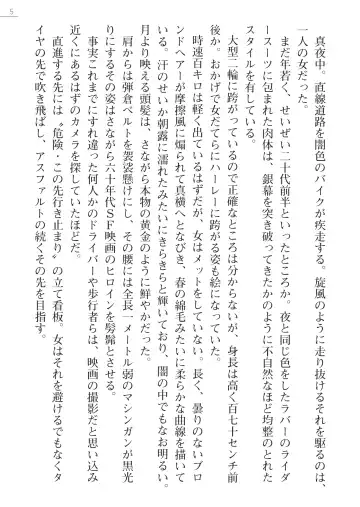 5
真夜中。直線道路を闇色のバイクが疾走する。旋風のように走り抜けるそれを駆るのは、
一人の女だった。
まだ年若く、せいぜい二十代前半といったところか。夜と同じ色をしたラバーのライダ
ースーツに包まれた肉体は、銀幕を突き破ってきたかのように不自然なほど均整のとれた
スタイルを有している。
大型二輪に跨がっているので正確なところは分からないが、身長は高く百七十センチ前
後か。おかげで女だてらにハーレーに跨がる姿も絵になっていた。
時速百キロは軽く出ているはずだが、女はメットをしていない。長く、曇りのないブロ
ンドヘアーが摩擦風に煽られて真横へとなびき、春の綿毛みたいに柔らかな曲線を描いて
いる。汗のせいか朝露に濡れたみたいにきらきらと輝いており、闇の中でもなお明るい。
月より映える頭髪は、さながら本物の黄金のように鮮やかだった。
肩からは弾倉ベルトを袈裟懸けにし、その腰には全長一メートル弱のマシンガンが黒光
りにするその姿はさながら六十年代ＳＦ映画のヒロインを髣髴とさせる。
事実これまでにすれ違った何人かのドライバーや歩行者らは、映画の撮影だと思い込み
近くにあるはずのカメラを探していた。
直進する先には〝危険・この先行き止まり〟の立て看板。女はそれを避けるでもなくタ
イヤの先で吹き飛ばし、アスファルトの続くその先を目指す。